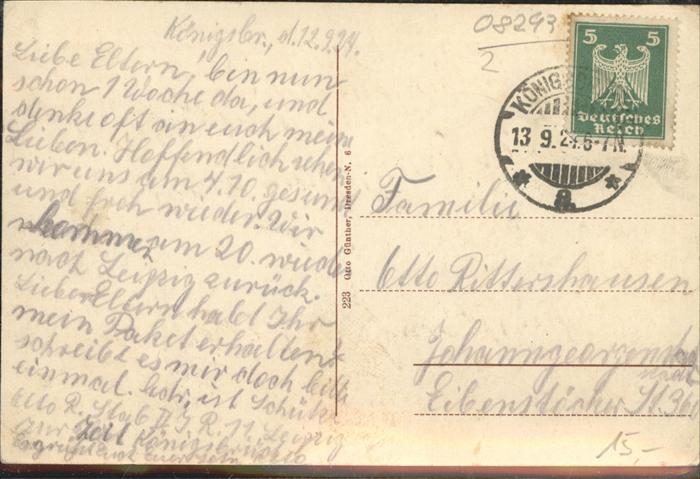 Königsbr., d. 12.9.24.
Liebe Eltern, bin nun
schon 1 Woche da, und
denke oft an euch meine
Lieben. Hoffendlich sehen
wir uns am 4.10. gesund
und froh wieder. Wir
kommen am 20. wieder
nach Leipzig zurück.
Liebe Eltern habt Ihr
mein Paket erhalten?
schreibt es mir doch bitte
einmal. Adr. ist Schütze
Otto R. Stab II. J. R. 11 Leipzig
zur Zeit Königsbrück
Es grüßt euch euer Sohn Otto
223 Otto Günther, Dresden-N. 6
08293
2
5 5
Deutsches
Reich
KÖNIGSB
13.9.24.6-7N.
* a *
Familie
Otto Rittershausen
Johanngeorgenstadt
Eibenstöcker St.
15,-